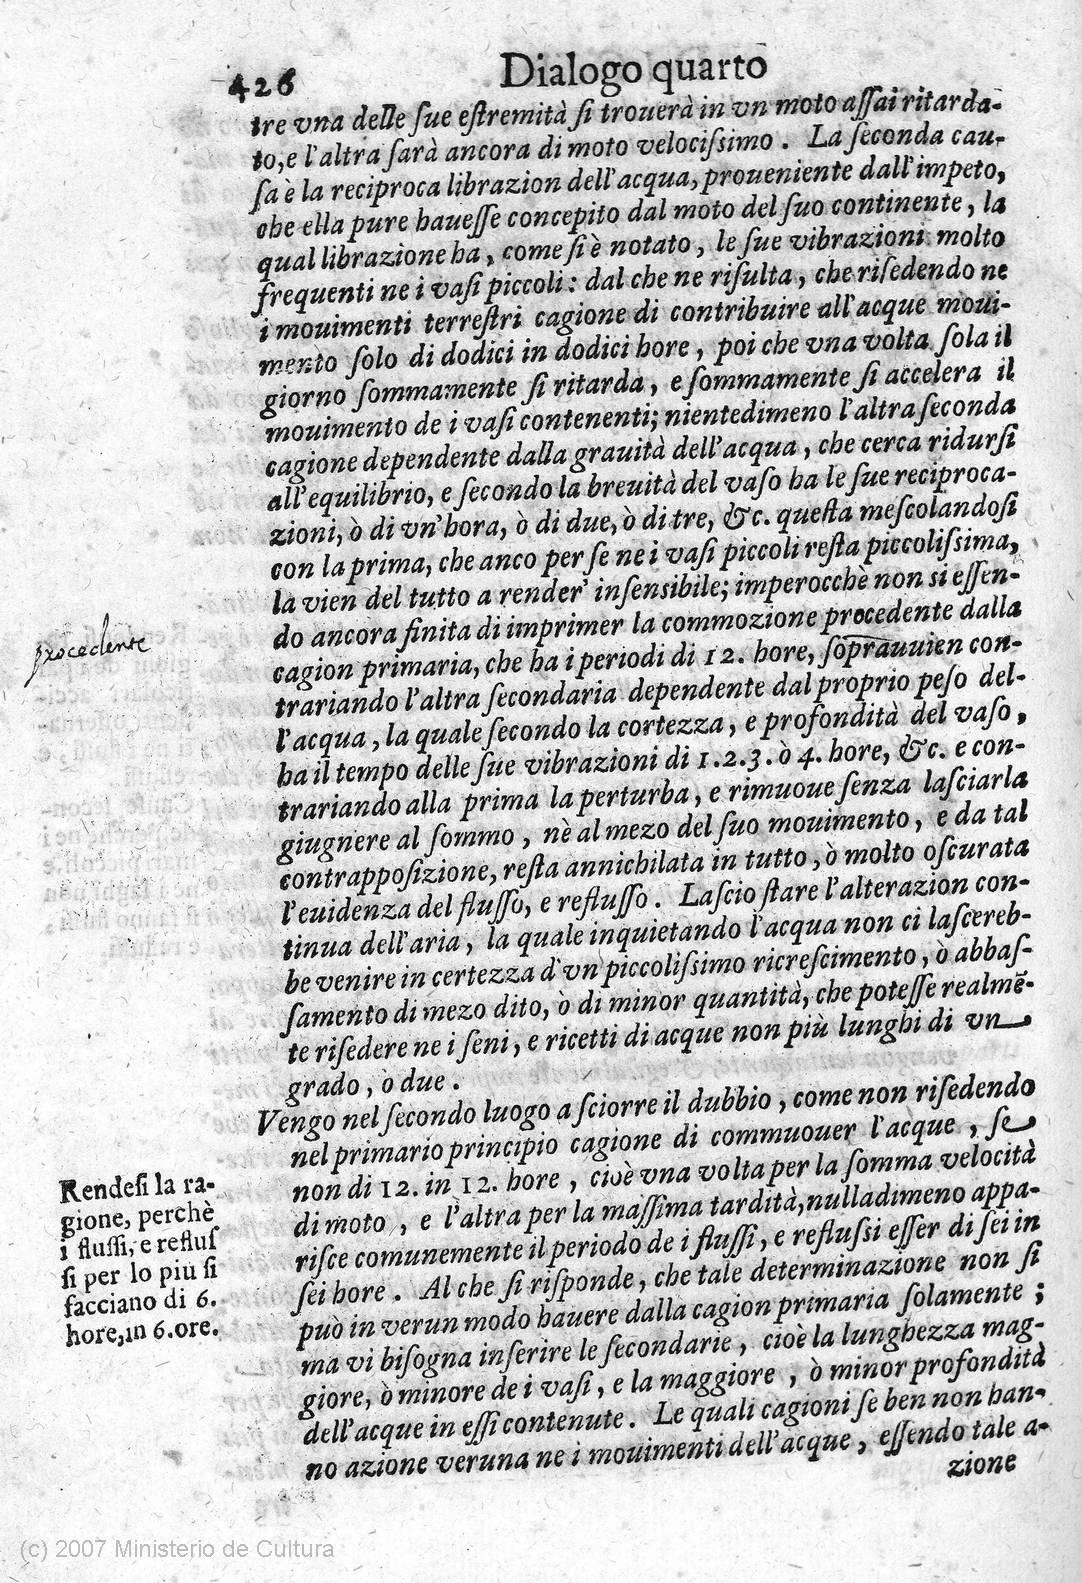 426
Dialogo quarto
tre vna delle ſue eſtremità ſi trouerà in vn moto aſſai ritarda-
to, e l'altra ſarà ancora di moto velociſsimo. La ſeconda cau-
ſa è la reciproca librazion dell'acqua, proueniente dall'impeto,
che ella pure haueſſe concepito dal moto del ſuo continente, la
qual librazione ha, come ſi è notato, le ſue vibrazioni molto
frequenti ne i vaſi piccoli: dal che ne riſulta, che riſedendo ne
i mouimenti terreſtri cagione di contribuire all'acque moui-
mento ſolo di dodici in dodici hore, poi che vna volta ſola il
giorno ſommamente ſi ritarda, e ſommamente ſi accelera il
mouimento de i vaſi contenenti; nientedimeno l'altra ſeconda
cagione dependente dalla grauità dell'acqua, che cerca ridurſi
all'equilibrio, e ſecondo la breuità del vaſo ha le ſue reciproca-
zioni, ò di vn'hora, ò di due, ò di tre, &c. queſta meſcolandoſi
con la prima, che anco per ſe ne i vaſi piccoli reſta piccoliſsima,
la vien del tutto a render' inſenſibile; imperocchè non si eſſen-
do ancora finita di imprimer la commozione procedente dalla
procedente
cagion primaria, che ha i periodi di 12. hore, ſoprauuien con-
trariando l'altra ſecondaria dependente dal proprio peſo del-
l'acqua, la quale ſecondo la cortezza, e profondità del vaſo,
ha il tempo delle ſue vibrazioni di 1.2.3. ò 4. hore, &c. e con-
trariando alla prima la perturba, e rimuoue ſenza laſciarla
giugnere al ſommo, nè al mezo del ſuo mouimento, e da tal
contrappoſizione, reſta annichilata in tutto, ò molto oſcurata
l'euidenza del fluſſo, e refluſſo. Laſcio ſtare l'alterazion con-
tinua dell'aria, la quale inquietando l'acqua non ci laſcereb-
be venire in certezza d'vn piccoliſsimo ricreſcimento, ò abbaſ-
ſamento di mezo dito, ò di minor quantità, che poteſſe realmē-
te riſedere ne i ſeni, e ricetti di acque non più lunghi di vn
grado, ò due.
Vengo nel ſecondo luogo a ſciorre il dubbio, come non riſedendo
nel primario principio cagione di commuouer l'acque, ſe
non di 12. in 12. hore, cioè vna volta per la ſomma velocità
di moto, e l'altra per la maſſima tardità, nulladimeno appa-
riſce comunemente il periodo de i fluſſi, e refluſsi eſſer di ſei in
ſei hore. Al che ſi riſponde, che tale determinazione non ſi
può in verun modo hauere dalla cagion primaria ſolamente;
ma vi biſogna inſerire le ſecondarie, cioè la lunghezza mag-
giore, ò minore de i vaſi, e la maggiore, ò minor profondità
dell'acque in eſſi contenute. Le quali cagioni ſe ben non han-
no azione veruna ne i mouimenti dell'acque, eſſendo tale a-
zione
Rendeſi la ra-
gione, perchè
i fluſſi, e refluſ
ſi per lo piu ſi
facciano di 6.
hore, in 6. ore.
(c) 2007 Ministerio de Cultura